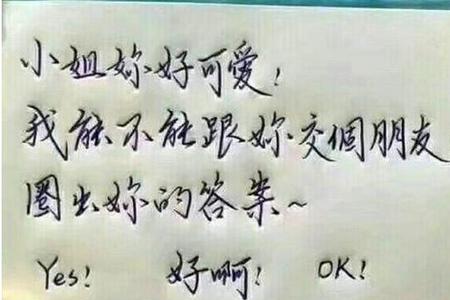 小姐妳好可愛！
我能不能跟妳交個朋友
圈出妳的答案~
Yes! 好啊! OK!